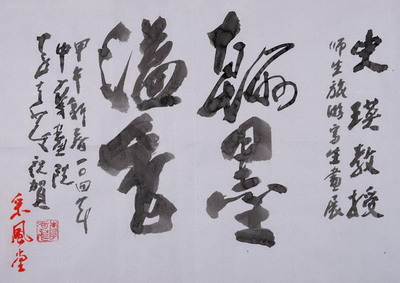 史瑛教授
师生旅游写生画展
翰墨
溢香
甲午新春二〇一四年
中华画院
祝贺
采风堂